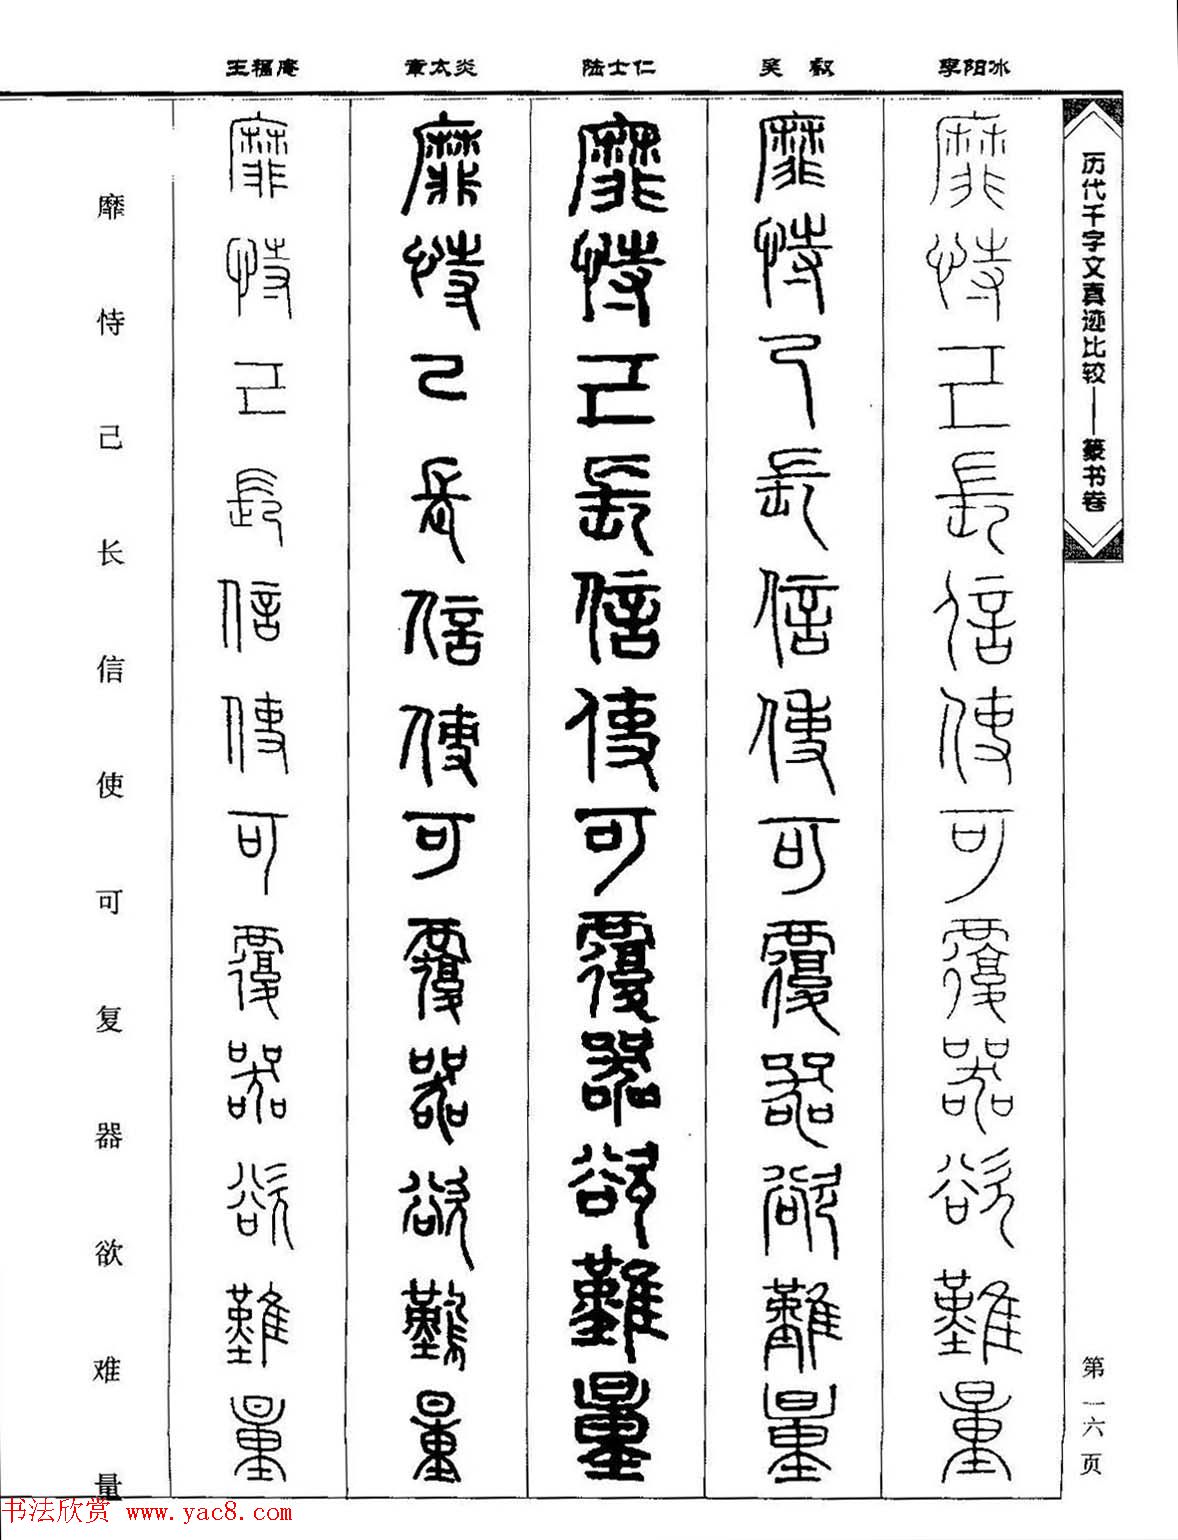 王福庵 章太炎 陆士仁 吴叡 李阳冰
历代千字文真迹比较——篆书卷
靡恃己長信使可覆器欲難量
靡恃己長信使可覆器欲難量
靡恃己長信使可覆器欲難量
靡恃己長信使可覆器欲難量
靡恃己長信使可覆器欲難量
靡恃己长信使可复器欲难量
第一六页
书法欣赏 www.yac8.com